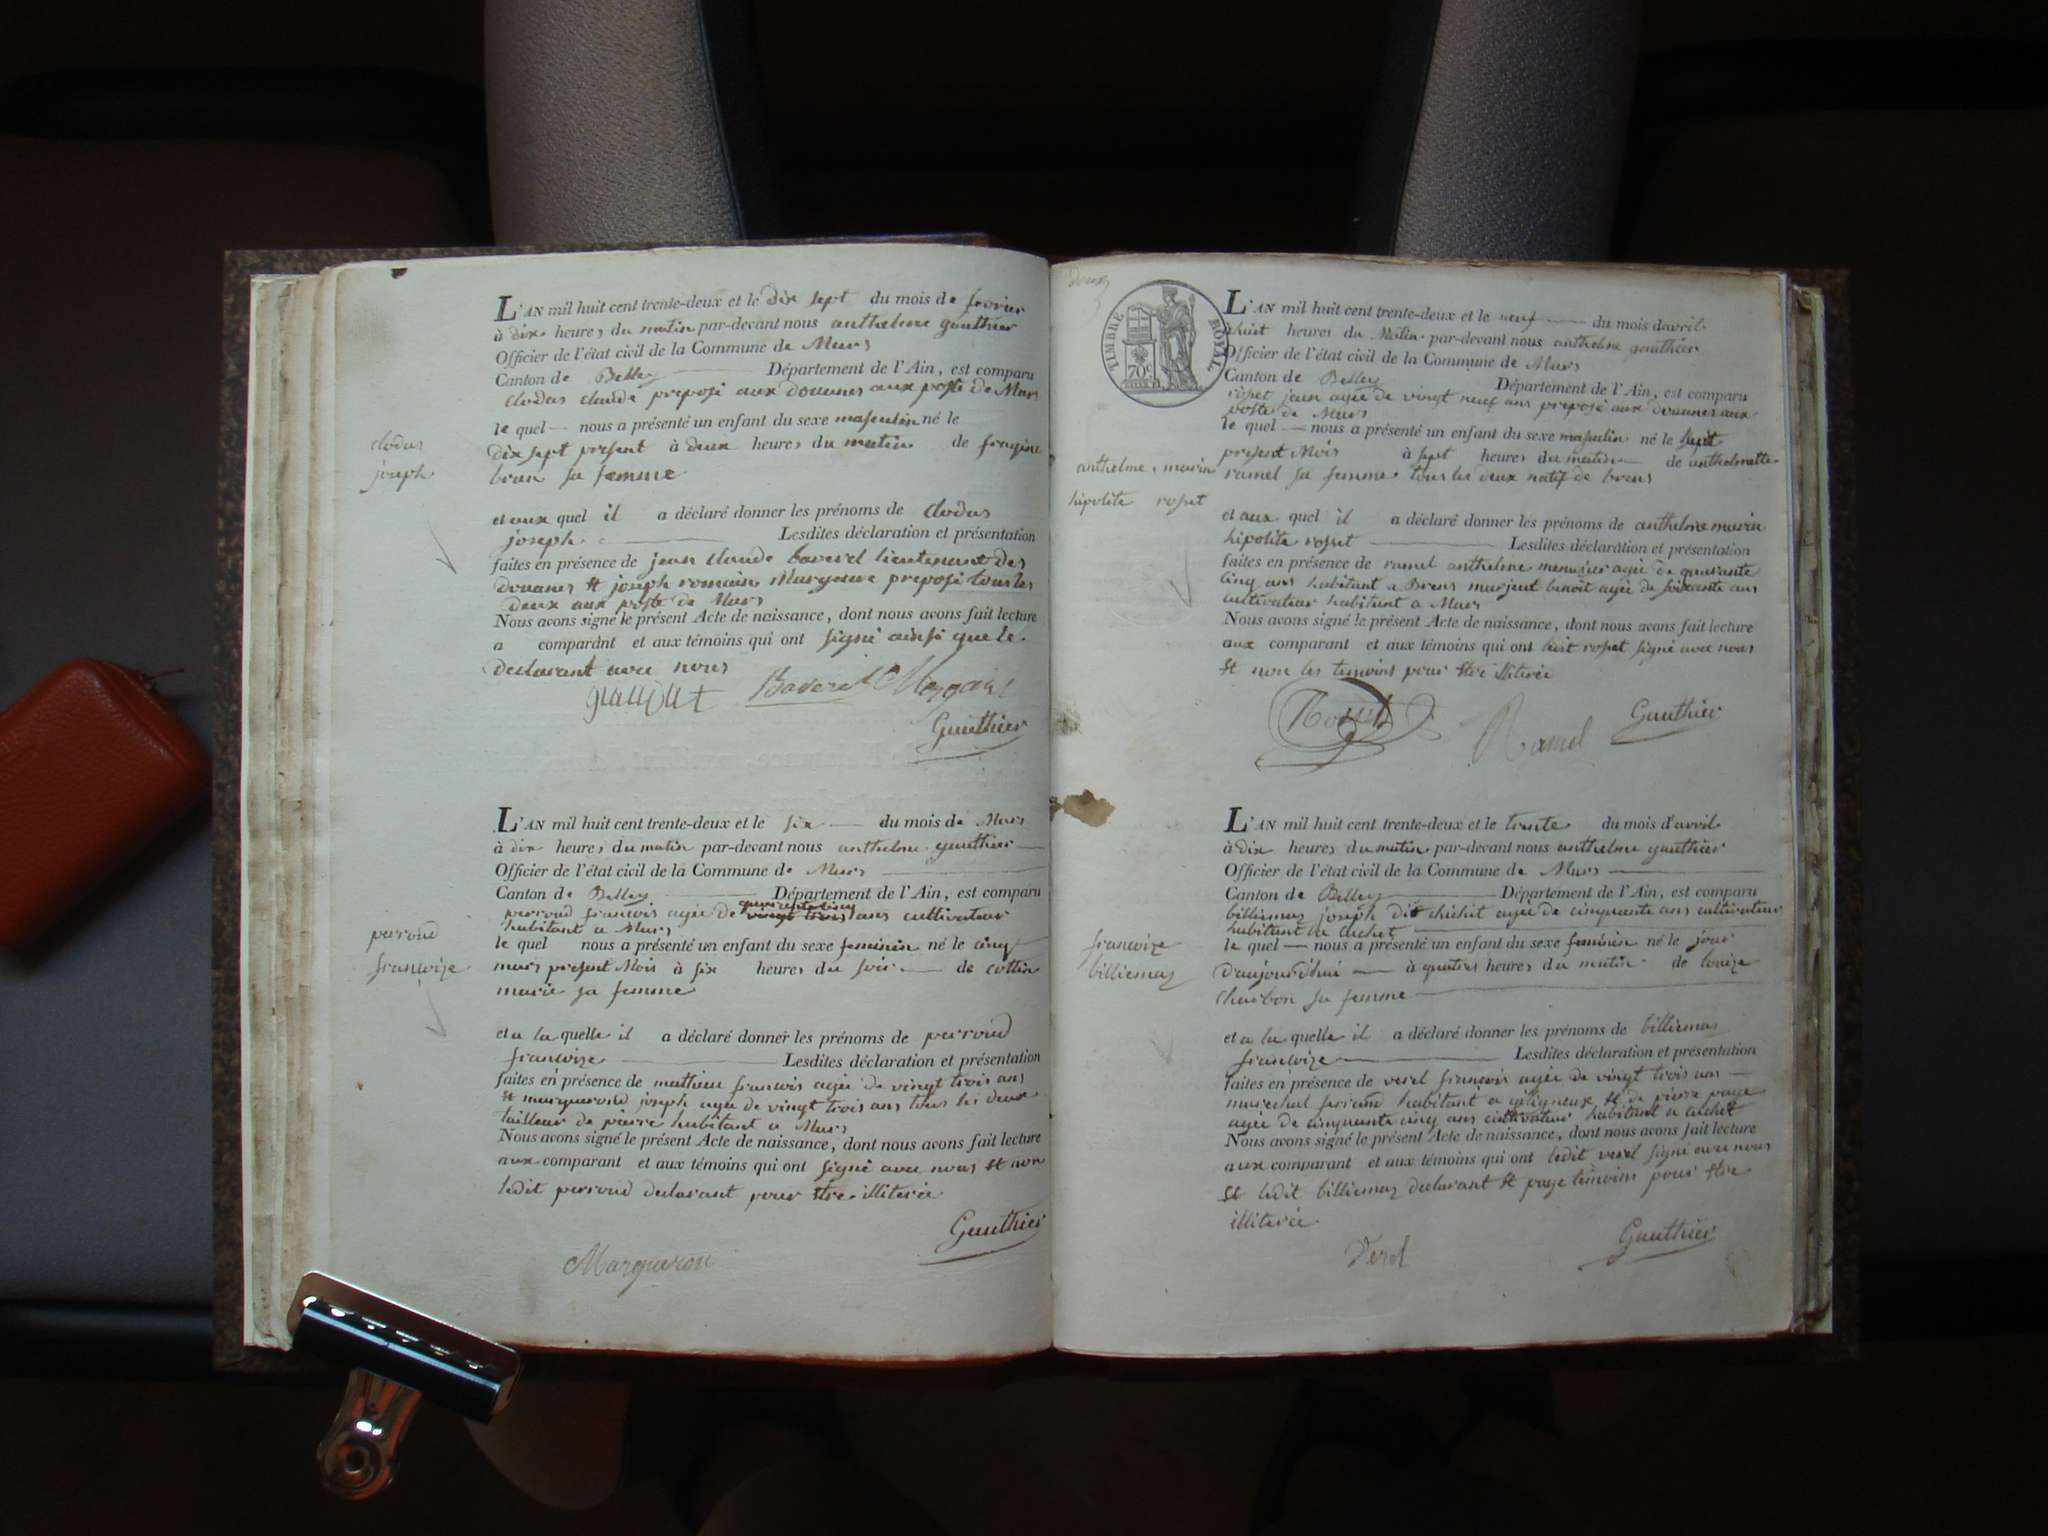 clodus
joseph
L'AN mil huit cent trente-deux et le dix sept du mois de fevrier
à dix heures du matin par-devant nous anthelme gauthier
Officier de l'état civil de la Commune de Murs
Canton de Belley Département de l'Ain, est comparu
clodus claude preposé aux douanes aux poste de Murs
le quel nous a présenté un enfant du sexe masculin né le
dix sept present à deux heures du matin de
brun sa femme
et aux quel il a déclaré donner les prénoms de clodus
joseph Lesdites déclaration et présentation
faites en présence de jean claude baverel lieutenant des
douanes et joseph romain preposé tous les
deux aux poste de Murs
Nous avons signé le présent Acte de naissance, dont nous avons fait lecture
a comparant et aux témoins qui ont signé ainsi que le
declarant avec nous
Baverel
Gauthier
perroud
francoize
L'AN mil huit cent trente-deux et le six du mois de Mars
à dix heures du matin par-devant nous anthelme gauthier
Officier de l'état civil de la Commune de Murs
Canton de Belley Département de l'Ain, est comparu
quarante cinq
perroud francois agée de vingt trois ans cultivateur
habitant a Murs
le quel nous a présenté un enfant du sexe feminin né le cinq
mars present Mois à six heures du soir de cottin
marie sa femme
et a la quelle il a déclaré donner les prénoms de perroud
francoize Lesdites déclaration et présentation
faites en présence de mathieu francois agée de vingt trois ans
et marqueroud joseph agée de vingt trois ans tous les deux
tailleur de pierre habitant a Murs
Nous avons signé le présent Acte de naissance, dont nous avons fait lecture
aux comparant et aux témoins qui ont signé avec nous et non
ledit perroud declarant pour etre illiterée
Gauthier
Marqueron
TIMBRE ROYAL
70 c
anthelme marin
hipolite roset
L'AN mil huit cent trente-deux et le neuf du mois davril
à huit heures du Matin par-devant nous anthelme gauthier
Officier de l'état civil de la Commune de Murs
Canton de Belley Département de l'Ain, est comparu
roset jean agée de vingt neuf ans preposé aux douanes aux
poste de Murs
le quel nous a présenté un enfant du sexe masculin né le
present Mois à sept heures du matin de anthelmette
ramel sa femme tous les deux natif de brens
et aux quel il a déclaré donner les prénoms de anthelme marin
hipolite roset Lesdites déclaration et présentation
faites en présence de ramel anthelme menusier agée de quarante
cinq ans habitant a Brens murjeut benoit agée de soixante ans
cultivateur habitant a Murs
Nous avons signé le présent Acte de naissance, dont nous avons fait lecture
aux comparant et aux témoins qui ont roset signé avec nous
et non les temoins pour etre illiterée
Rosset
Ramel
Gauthier
francoize
billiemaz
L'AN mil huit cent trente-deux et le trente du mois d'avril
à dix heures du matin par-devant nous anthelme gauthier
Officier de l'état civil de la Commune de Murs
Canton de Belley Département de l'Ain, est comparu
billiemaz joseph dit chichit agée de cinquante ans cultivateur
habitant a cuchet
le quel nous a présenté un enfant du sexe feminin né le jour
d'aujourd'hui à quatres heures du matin de louize
charbon sa femme
et a la quelle il a déclaré donner les prénoms de billiemaz
francoize Lesdites déclaration et présentation
faites en présence de verel francois agée de vingt trois ans
marechal ferrant habitant a et de pierre page
agée de cinquante cinq ans cultivateur habitant a cuchet
Nous avons signé le présent Acte de naissance, dont nous avons fait lecture
aux comparant et aux témoins qui ont ledit verel signé avec nous
et ledit billiemaz declarant et page temoins pour etre
illiterée
Verel
Gauthier